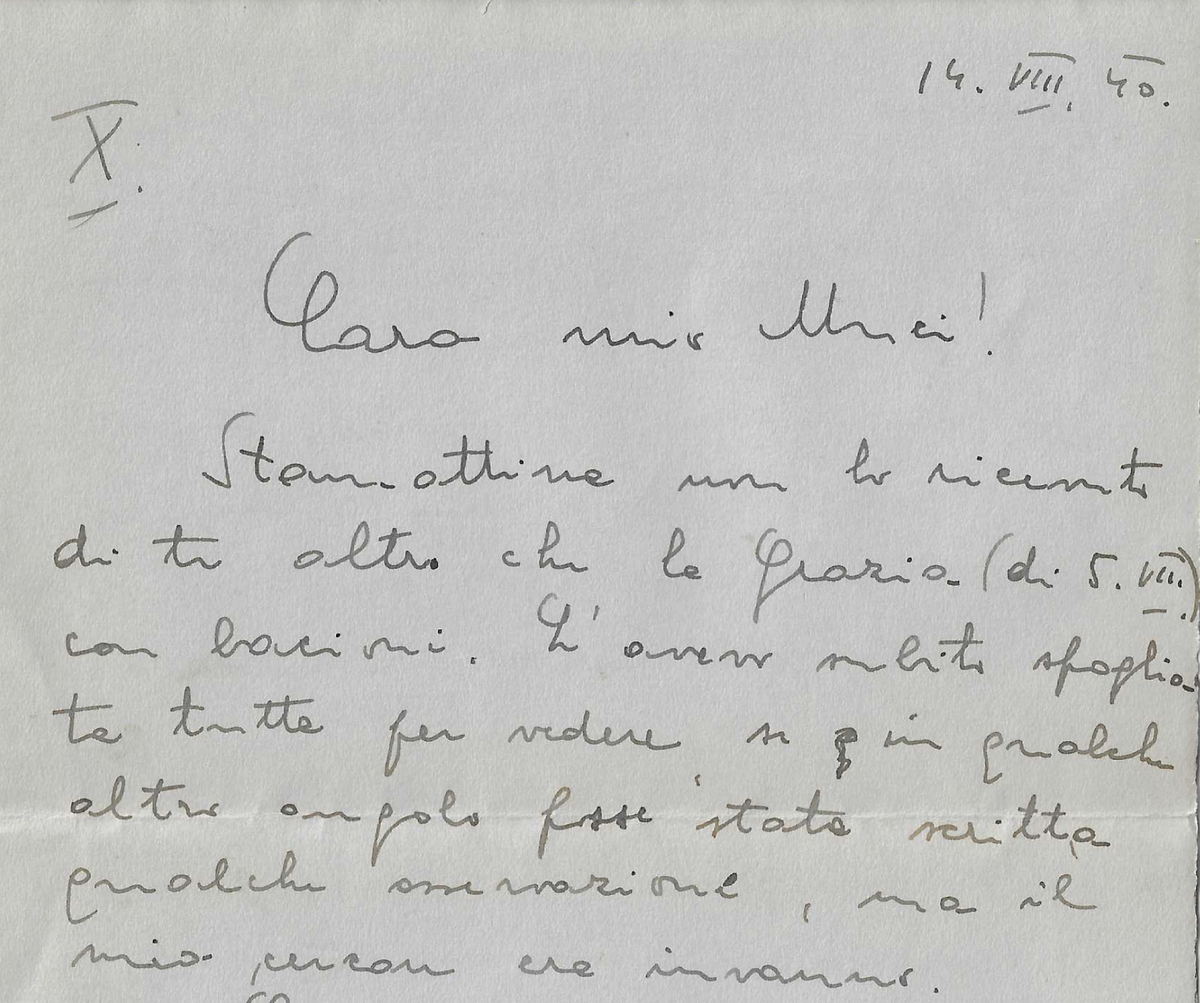 14. VIII. 40.
X.
Cara mia Muci!
Stamattina non ho ricevuto
di te altro che la Grazia (di 5. VIII.)
con bacioni. L'avevo subito sfoglia-
ta tutta per vedere se in qualche
altro angolo fosse stata scritta
qualche osservazione, ma il
mio cercare era invanno.